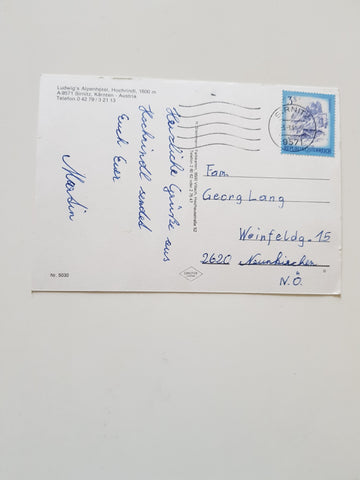 Ludwig's Alpenhotel, Hochrindl, 1600 m
A-9571 Sirnitz, Kärnten - Austria
Telefon 0 42 79 / 3 21 13
Herzliche Grüße aus
Hochrindl sendet
Euch Euer
Martin
Nr. 5030
S3
SIRNITZ
9571
Fam.
Georg Lang
Weinfeldg. 15
2620 Neunkirchen
N.Ö.